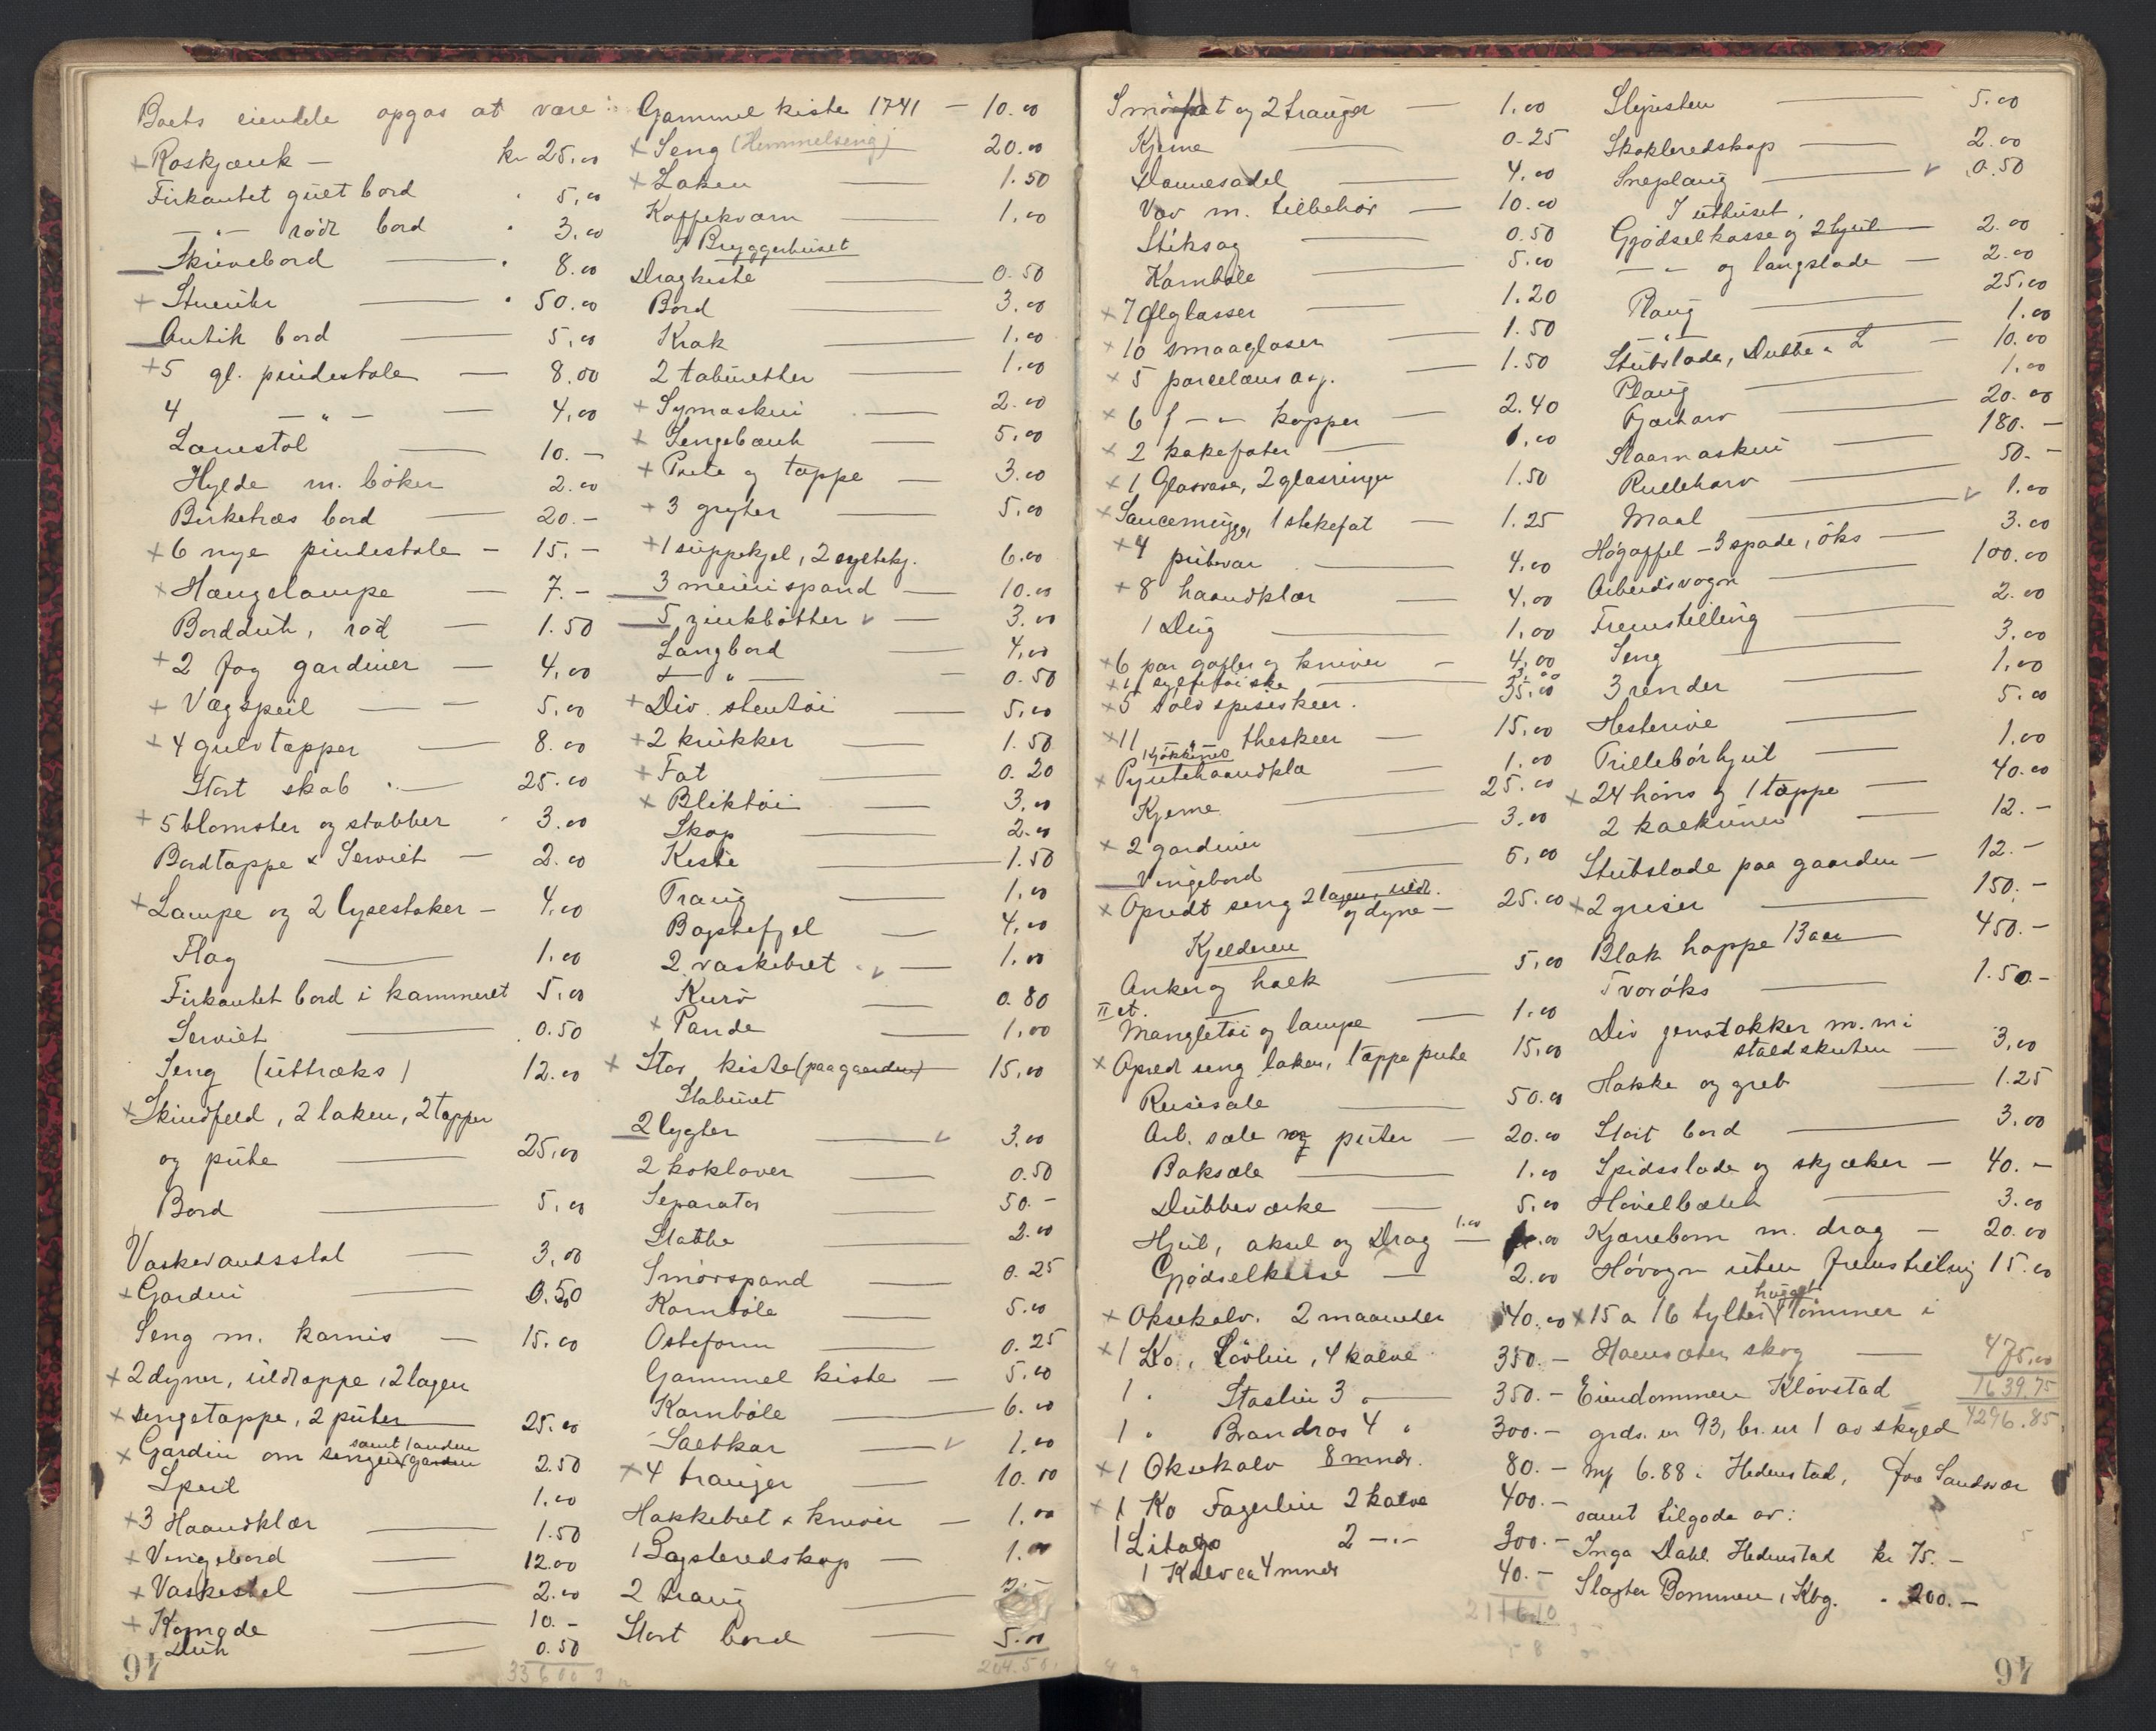 Boets eiendele opgas at være:
+ Roskjænk — kr 25.00
Firkantet guet bord " 5.00
—"— rödt bord " 3.00
Skrivebord — " 8.00
+ Stueuhr — " 50.00
Antik bord — 5.00
+ 5 gl. pindestole — 8.00
4 —"— — 4.00
Lænestol — 10.—
Hylde m. böker 2.00
Birketræs bord — 20.—
+ 6 nye pindestole — 15.—
× Hængelampe — 7.—
Bordduk, röd — 1.50
+ 2 fag gardiner — 4.00
+ Vægspeil — 5.00
+ 4 gulvtæpper — 8.00
Stort skab — 25.00
+ 5 blomster og stabber " 3.00
Bordtæppe & Serviet — 2.00
+ Lampe og 2 lysestaker — 4.00
Flag — 1.00
Firkantet bord i kammeret 5.00
Serviet — 0.50
Seng (uttræks) 12.00
× Skindfeld, 2 laken, 2 tæpper
og pute — 25.00
Bord — 5.00
Vaskevandsstol — 3.00
+ Gardin — 0.50
Seng m. karnis — 15.00
+ 2 dyner, uldtæppe, 2 lagen
× sengetæppe, 2 puter 25.00
samt 1 anden
× Gardin om sengen gardin 2.50
Speil 1.00
+ 3 Haandklær — 1.50
+ Vingebord — 12.00
+ Vaskestel — 2.00
+ Komode — 10.—
Duk — 0.50
336 00
97
Gammel kiste 1741 — 10.00
+ Seng (Hemmelseng) 20.00
+ Laken — 1.50
Kaffekværn — 1.00
I Bryggerhuset
Dragkiste — 0.50
Bord — 3.00
Krak — 1.00
2 taburetter — 1.00
+ Symaskin — 2.00
+ Sengebænk — 5.00
+ Pute og tæppe — 3.00
+ 3 gryter — 5.00
+ 1 suppekjel, 2 syltekj. 6.00
3 meierispand — 10.00
5 zinkbötter v — 3.00
Langbord — 4.00
—"— — 0.50
+ Div. stentöi — 5.00
+ 2 krukker — 1.50
+ Fat — 0.20
× Bliktöi — 3.00
Skap — 2.00
Kiste — 1.50
Traug — 1.00
Bagstefjel — 4.00
2 vaskebret v — 1.00
Kurv — 0.80
× Pande — 1.00
× Stor kiste (paa gaarden) 15.00
Staburet
2 lygter — v 3.00
2 koklover — 0.50
Separator — 50.—
Slabbe 2.00
Smörspand — 0.25
Kornböle — 5.00
Osteform — 0.25
Gammel kiste — 5.00
Kornböle — 6.00
Saltkar — v 1.00
× 4 trauger — 10.00
Hakkebret & kniver — 1.00
1 Bagsteredskap — 1.00
2 traug — 2.—
Stort bord — 5.00
204.50
Smörfat og 2 trauger — 1.00
Kjerne — 0.25
Damesadel — 4.00
Væv m. tilbehör — 10.00
Stiksag — 0.50
Kornböle — 5.00
× 7 ölglasser — 1.20
× 10 smaaglaser — 1.50
× 5 porcelæns asj. — 1.50
× 6 f —"— kopper — 2.40
× 2 kakefater — 1.00
× 1 Glasvase, 2 glasringer 1.50
× Saucemugge, 1 stekefat — 1.25
+ 4 putevar — 4.00
+ 8 haandklær — 4.00
1 Dug — 1.00
+ 6 par gafler og kniver — 4.00
+ 1 syltetöiske — 3.00
+ 5 sölvspiseskeer. 35.00
× 11 " theskeer — 15.00
Kjökkenet
× Pyntehaandklæ — 1.00
Kjerne — 25.00
× 2 gardiner — 3.00
Vingebord — 5.00
× Opredt seng 2 lagen, uldt.
og dyne — 25.00
Kjelderen
Anker og halk — 5.00
II et.
Mangletöi og lampe — 1.00
× Opredt seng laken, tæppe pute 15.00
Reisesæle — 50.00
Arb. sæle og puter — 20.00
Baksæle — 1.00
Dubbeværke — 5.00
Hjul, aksel og Drag 1.00 — .00
Gjödselkasse — 2.00
× Oksekalv. 2 maaneder 40.00
× 1 Ko, Lövlin, 4 kalve 350.—
1 " Staslin 3 " — 350.—
1 " Brandros 4 " 300.—
× 1 Oksekalv 8 mndr. 80.—
× 1 Ko Fagerlin 2 kalve 400.—
1 Litago 2 —"— 300.—
1 Kalv ca 4 mndr 40.—
2116.10
Slipesten — 5.00
Skokleredskap — 2.00
Sneplaug — v 0.50
I uthuset.
Gjödselkasse og 2 hjul — 2.00
—"— og langslæde — 2.00
Plaug — 25.00
—"— 1.00
Stubslæde, Dubbe " 2 — 10.00
Plaug — 1.00
Fjærharv — 20.00
Slaamaskin — 180.—
Rulleharv — 50.—
Maal — v 1.00
Högaffel — 3 spade, öks — 3.00
Arbeidsvogn — 100.00
Fremstilling — 2.00
Seng — 3.00
3 render — 1.00
Hesterive — 5.00
Trillebörhjul — 1.00
× 24 höns og 1 tæppe — 40.00
2 kalkuner — 12.—
Stubslæde paa gaarden — 12.—
× 2 griser — 150.—
Blak hoppe 13 aar 450.—
Tværöks — 1.50.—
Div jernstokker m.m i
staldskuten — 3.00
Hakke og greb — 1.25
Stort bord — 3.00
Spidsslæde og skjæker — 40.—
Hövelbænk — 3.00
Kjærreborn m. drag — 20.00
Hövogn uten fremstilling 15.00
hugget
× 15 a 16 tylter tömmer i
Hoensæter skog — 475.00
1639.75
Eiendommen Klövstad
4296.85
grds. nr 93, br. nr 1 av skyld
mk 6.88 i Hedenstad,Övre Sandsvær
samt tilgode av:
Inga Dahl. Hedenstad kr 75.—
Slagter Bommen, Kbg. " 200.—
97